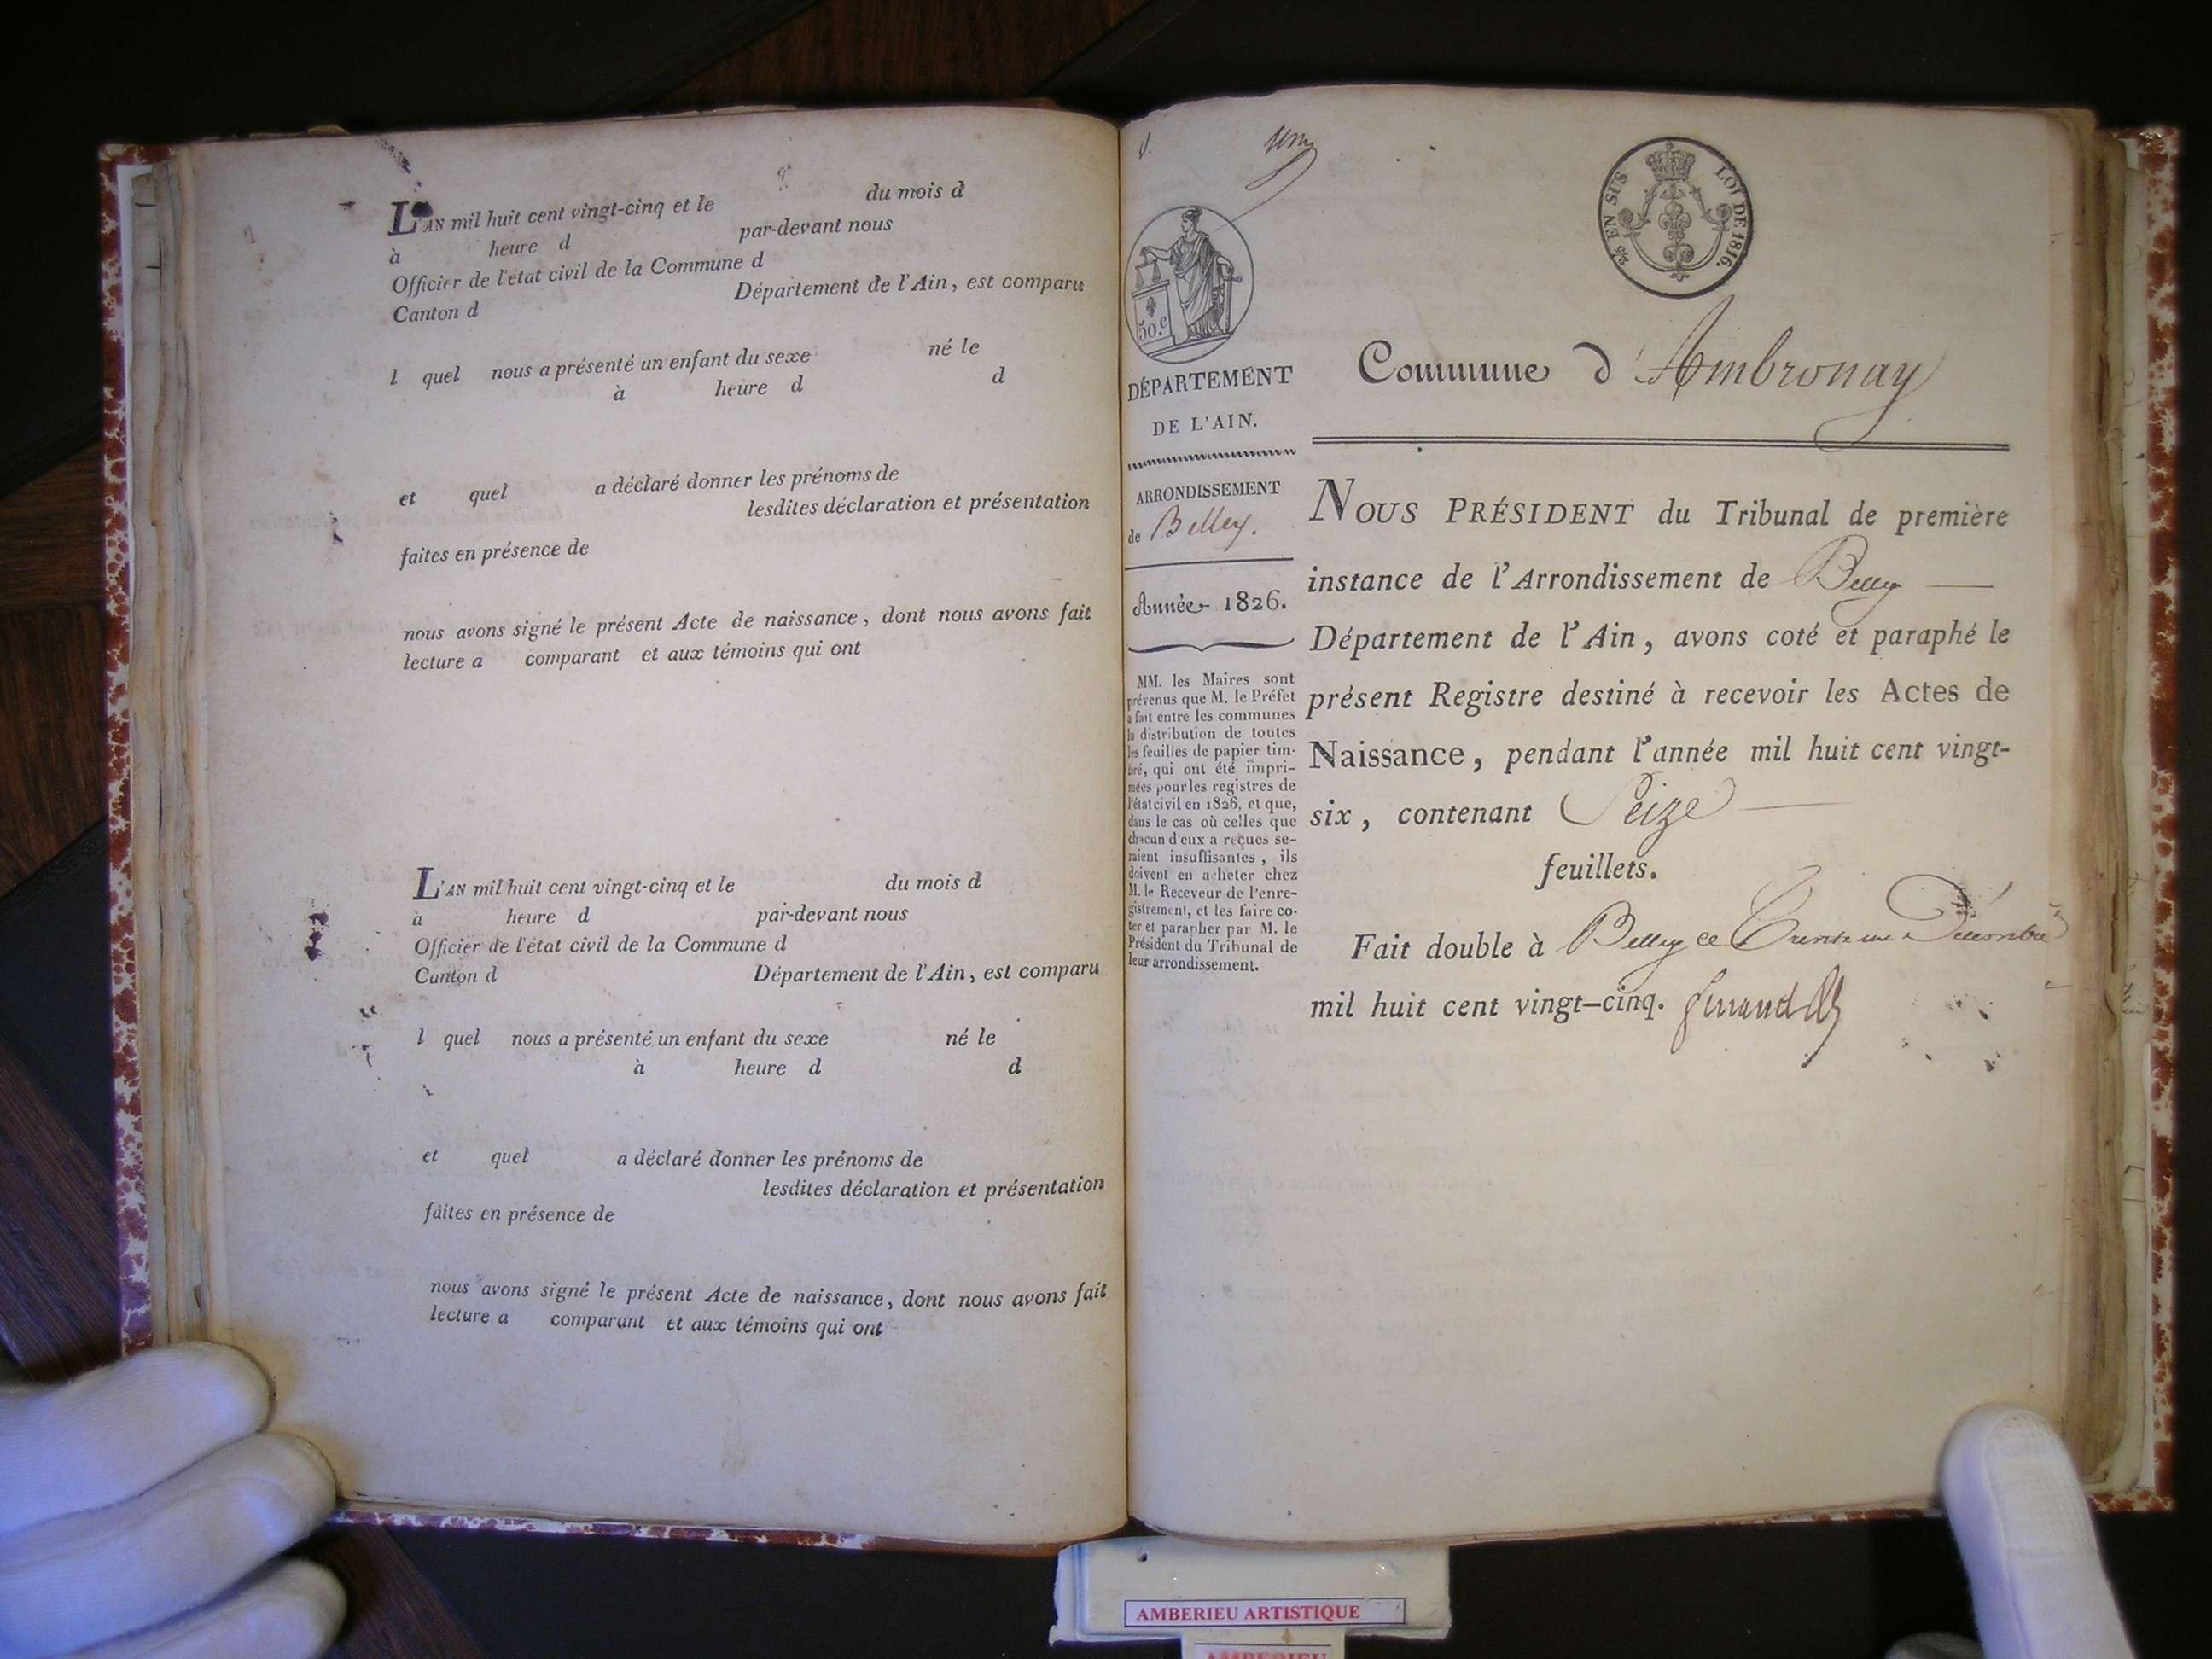 L'AN mil huit cent vingt-cinq et le du mois d
à heure d par-devant nous
Officier de l'état civil de la Commune d
Canton d Département de l'Ain, est comparu
l quel nous a présenté un enfant du sexe né le
à heure d d
et quel a déclaré donner les prénoms de
lesdites déclaration et présentation
faites en présence de
nous avons signé le présent Acte de naissance, dont nous avons fait
lecture a comparant et aux témoins qui ont
L'AN mil huit cent vingt-cinq et le du mois d
à heure d par-devant nous
Officier de l'état civil de la Commune d
Canton d Département de l'Ain, est comparu
l quel nous a présenté un enfant du sexe né le
à heure d d
et quel a déclaré donner les prénoms de
lesdites déclaration et présentation
faites en présence de
nous avons signé le présent Acte de naissance, dont nous avons fait
lecture a comparant et aux témoins qui ont
50.c
DÉPARTEMENT
DE L'AIN.
ARRONDISSEMENT
de Belley.
Année 1826.
MM. les Maires sont
prévenus que M. le Préfet
a fait entre les communes
la distribution de toutes
les feuilles de papier tim-
bré, qui ont été impri-
mées pour les registres de
l'état civil en 1826, et que,
dans le cas où celles que
chacun d'eux a reçues se-
raient insuffisantes, ils
doivent en acheter chez
M. le Receveur de l'enre-
gistrement, et les faire co-
ter et parapher par M. le
Président du Tribunal de
leur arrondissement.
EN SUS LOI DE 1816.
Commune d'Ambronay
NOUS PRÉSIDENT du Tribunal de première
instance de l'Arrondissement de Belley
Département de l'Ain, avons coté et paraphé le
présent Registre destiné à recevoir les Actes de
Naissance, pendant l'année mil huit cent vingt-
six, contenant Seize
feuillets.
Fait double à Belley ce Trente un Décembre
mil huit cent vingt-cinq.
AMBERIEU ARTISTIQUE
AMBERIEU